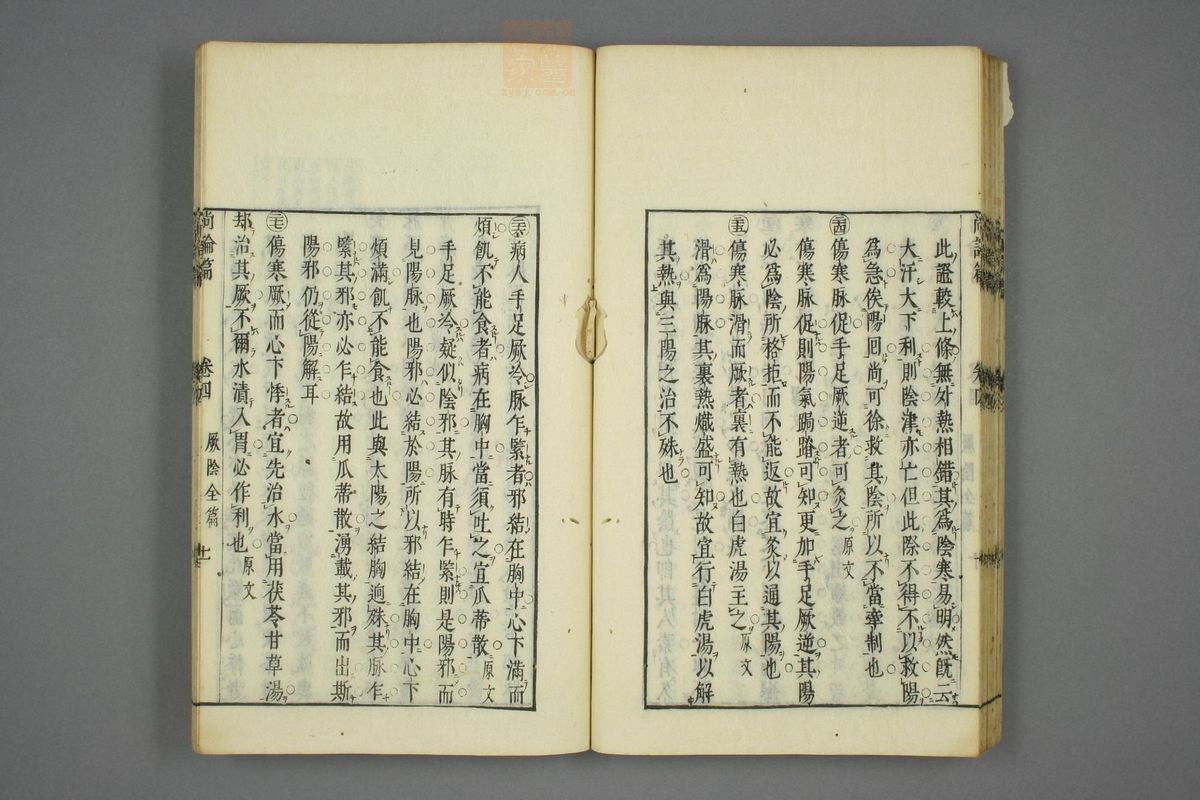 此證較上條無外熱相錯其為陰寒易明然既云
大汗大下利則陰津亦亡但此際不得不以救陽
為急俟陽回尚可徐救其陰所以不當牽制也
傷寒脉促手足厥逆者可灸之原文
傷寒脉促則陽氣跼蹐可知更加手足厥逆其陽
必為陰所格拒而不能返故宜灸以通其陽也
傷寒脉滑而厥者裏有熱也白虎湯主之原文
滑為陽脉其裏熱熾盛可知故宜行白虎湯以解
其熱與三陽之治不殊也
病人手足厥冷脉乍緊者邪結在胸中心下滿而
煩飢不能食者病在胸中當須吐之宜瓜蒂散原文
手足厥冷疑似陰邪其脉有時乍緊則是陽邪而
見陽脉也陽邪必結於陽所以邪結在胸中心下
煩滿飢不能食也此與太陽之結胸迥殊其脉乍
緊其邪亦必乍結故用瓜蒂散湧載其邪而出斯
陽邪仍從陽解耳
傷寒厥而心下悸者宜先治水當用茯苓甘草湯
却治其厥不爾水漬入胃必作利也原文
尚論篇 卷四 厥陰全篇
zysj.com.cn